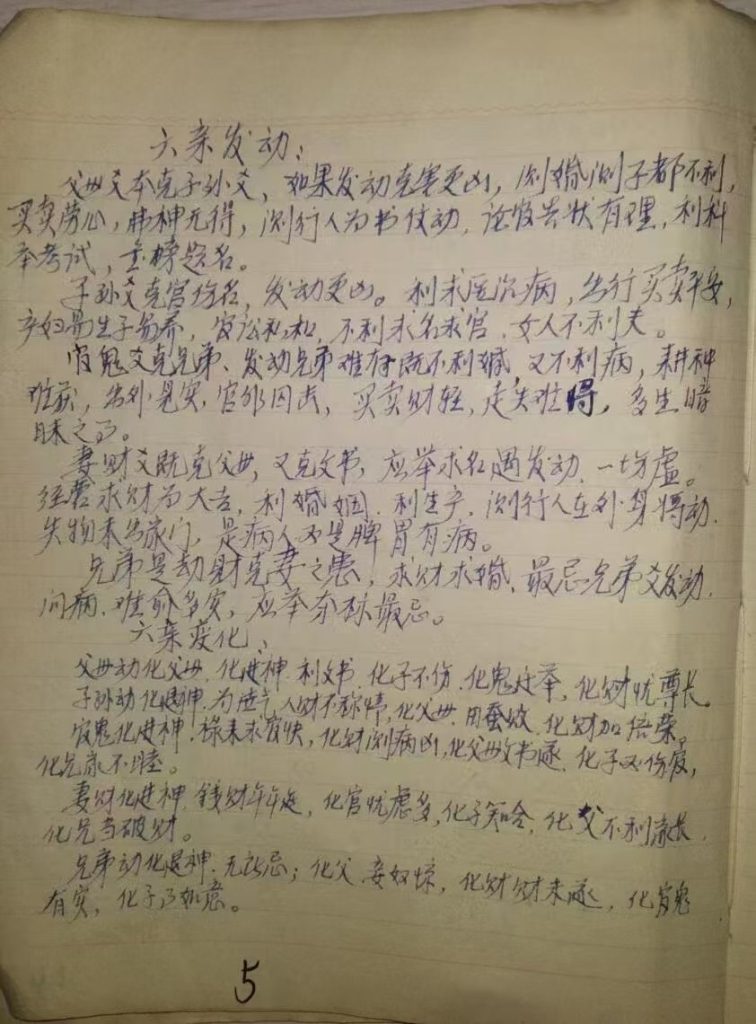 六亲发动：
父母爻本克子孙爻，如果发动克害更凶，测婚测子都不利，
买卖劳心，财神无得，测行人为书信动，论官告状有理，利科
举考试，金榜题名。
子孙爻克官伤名，发动更凶。利求医治病，出行买卖平安，
产妇易生子易养，官讼私和，不利求名求官，女人不利夫。
官鬼爻克兄弟、发动兄弟难存既不利婚，又不利病，耕种
难获，出外见灾，官邪因此，买卖财轻，走失难得，多生暗
昧之子。
妻财爻既克父母，又克文书，应举求名遇发动，一切虚。
经营求财为大吉，利婚姻，利生产，测行人在外身将动，
失物未出家门，是病人不是脾胃有病。
兄弟是劫财克妻之患，求财求婚，最忌兄弟爻发动，
问病，难愈多灾，应举夺标最忌。
六亲变化、
父母动化父母，化进神，利文书，化子不伤，化鬼迁举，化财忧尊长。
子孙动化退神，为 人财不称情，化父母，田蚕败，化财加倍荣。
官鬼化进神，禄来求官快，化财测病凶，化父母文书遂，化子必伤官，
化兄家不睦。
妻财化进神，钱财年年进，化官忧虑多，化子 ，化父不利家长，
化兄当破财。
兄弟动化退神，无 忌；化父，妾奴惊，化财财未遂，化官鬼
有灾，化子 如意。
5